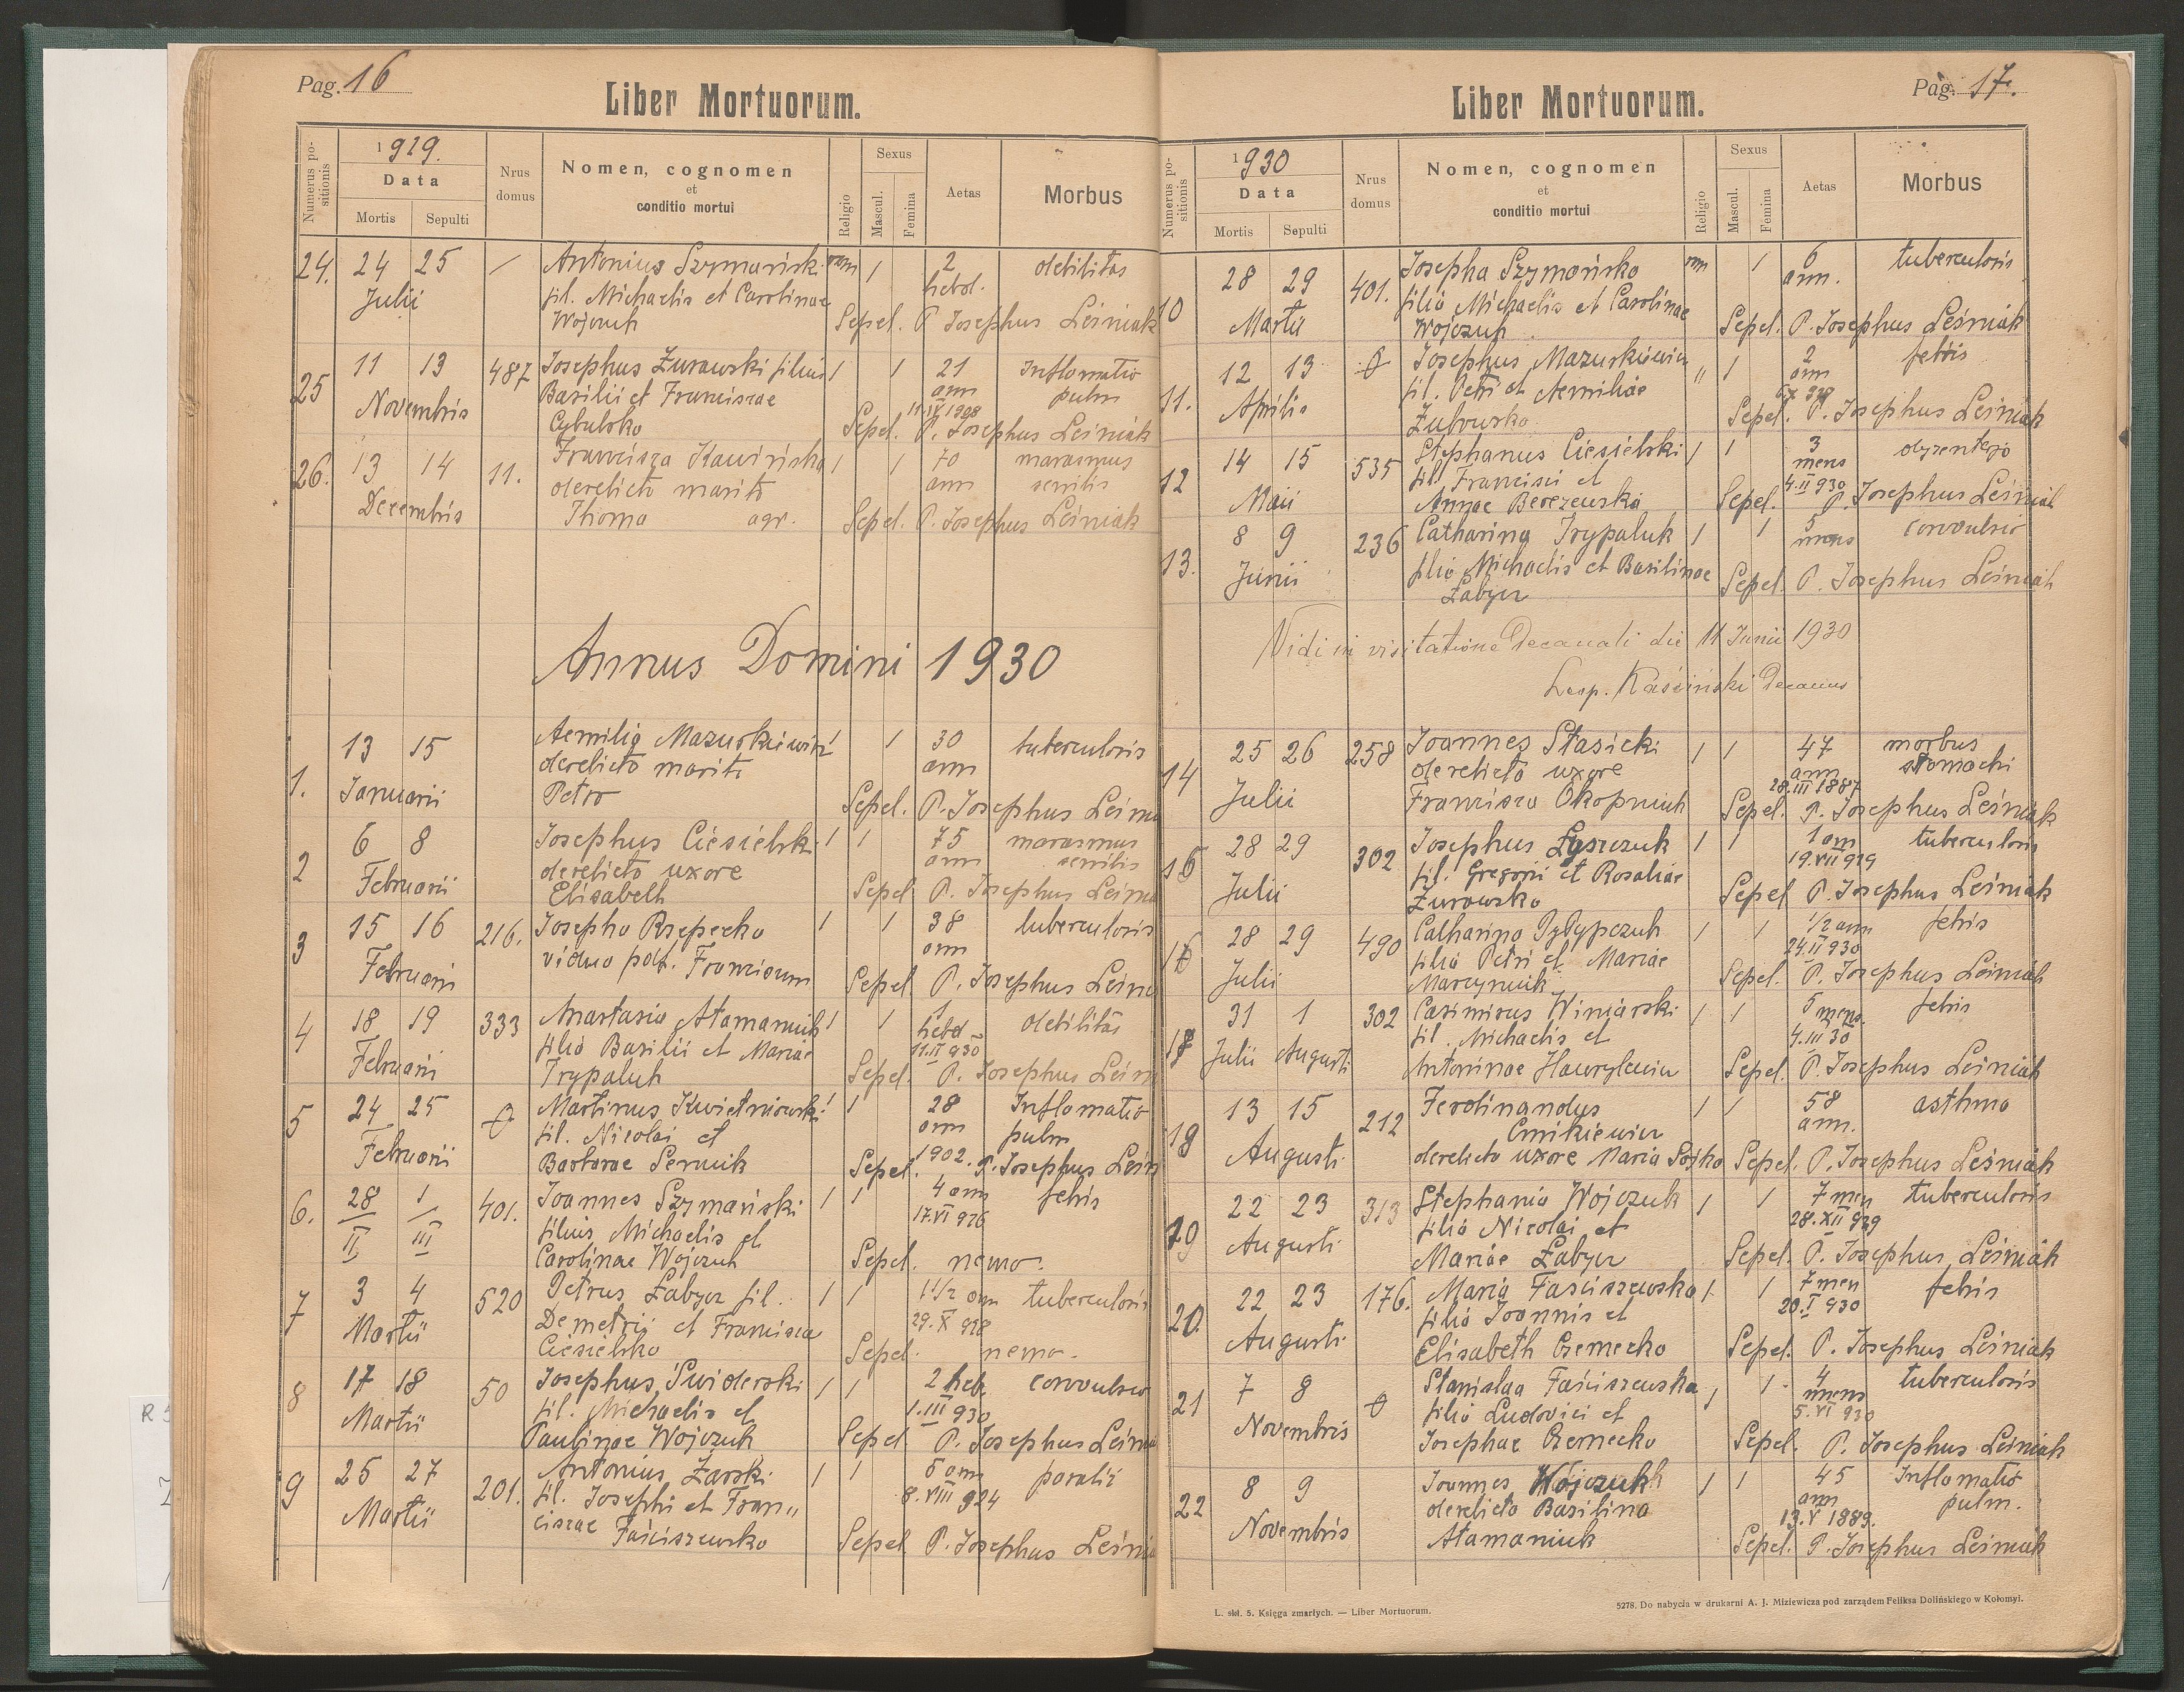 Pag. 16
Liber Mortuorum.
Numerus positionis
1929.
Data
Mortis Sepulti
Nrus domus
Nomen, cognomen
et
conditio mortui
Religio
Sexus
Mascul. Femina
Aetas
Morbus
24. 24 25 / Antonius Szymański rom 1 2 debilitas
Julii fil. Michaelis et Carolinae hebd.
Wojczuk Sepel. P. Josephus Leśniak
25 11 13 487 Josephus Żurawski filius 1 1 21 Inflamatio
Novembris Basilii et Franciscae ann pulm
11.IV 1908
Cybulska Sepel. P. Josephus Leśniak
26. 13 14 11. Francisca Kawińska 1 1 70 marasmus
derelicto marito ann senilis
Decembris Thoma agr. Sepel. P. Josephus Leśniak
Annus Domini 1930
1. 13 15 Aemilia Mazurkiewicz 1 1 30 tuberculosis
Januarii derelicto marito ann
Petro Sepel. P. Josephus Leśnia
2 6 8 Josephus Ciesielski 1 1 75 marasmus
Februarii derelicta uxore ann senilis
Elisabeth Sepel P. Josephus Leśnia
3 15 16 216. Josepha Rzepecka 1 1 38 tuberculosis
Februarii vidua post. Franciscum ann
Sepel. P. Josephus Leśnia
4 18 19 333 Anastasia Atamaniuk 1 1 1 debilitas
Februarii filia Basilii et Mariae hebd
11.II 930
Trypaluk Sepel. P. Josephus Leśn
5 24 25 Martinus Kwietniowski 1 1 28 Inflamatio
Februarii fil. Nicolai et ann pulm
Barbarae Serwik Sepel. 1902. P. Josephus Leśn
6. 28 1 401. Joannes Szymański 1 1 4 ann febris
II III filius Michaelis et 17.VI 926
Carolinae Wojczuk Sepel. nemo.
7 3 4 520 Petrus Łabycz fil. 1 1 1 1/2 ann tuberculosis
Martii Demetrii et Francisca 29.X 928
Ciesielska Sepel. nemo.
8 17 18 50 Josephus Świderski 1 1 2 heb. convulsio
Martii fil. Michaelis et 1.III 930
Paulinae Wojczuk Sepel P. Josephus Leśnia
9 25 27 201. Antonius Żarski 1 1 5 ann paraliż
Martii fil. Josephi et Fran„ 8.VIII 924
ciscae Faściszewska Sepel. P. Josephus Leśnia
Pag. 17.
Liber Mortuorum.
Numerus positionis
1930
Data
Mortis Sepulti
Nrus domus
Nomen, cognomen
et
conditio mortui
Religio
Sexus
Mascul. Femina
Aetas
Morbus
10 28 29 401. Josepha Szymańska rom 1 6 tuberculosis
Martii filia Michaelis et Carolinae ann.
Wojczuk Sepel. P. Josephus Leśniak
11. 12 13 Josephus Mazurkiewicz „ 1 2 febris
Aprilis fil. Petri et Aemiliae ann
Żubrowska Sepel. P. Josephus Leśniak
12 14 15 535 Stephanus Ciesielski 1 1 3 dyzenterja
Maii fil. Francisci et mens
4.II 930
Annae Berezewska Sepel. P. Josephus Leśniak
13. 8 9 236 Catharina Trypaluk 1 1 5 convulsio
Junii filia Michaelis et Basilinae mens
Łabycz Sepel. P. Josephus Leśniak
Vidi in visitatione Decanali die 11 Junii 1930
Kaściński Decanus
14 25 26 258 Joannes Stasicki 1 1 47 morbus
Julii derelicta uxore ann stomachi
28.III 1887
Francisca Okopniuk Sepel. P. Josephus Leśniak
15 28 29 302 Josephus Łyszczuk 1 1 1 ann tuberculosis
Julii fil. Gregorii et Rosaliae 19.VII 929
Żurowska Sepel P. Josephus Leśniak
16 28 29 490 Catharina Pyłypczuk 1 1 1/2 ann febris
Julii filia Petri et Mariae 24.II 930
Marcyniuk Sepel. P. Josephus Leśniak
17 31 1 302 Casimirus Winiarski 1 1 5 mens. febris
Julii Augusti fil. Michaelis et 4.III 30
Antoninae Hawrylewicz Sepel. P. Josephus Leśniak
18 13 15 212 Ferdinandus 1 1 58 asthma
Cmikiewicz ann.
Augusti derelicta uxore Maria Sojka Sepel. P. Josephus Leśniak
19 22 23 313 Stephania Wojczuk 1 1 7 men tuberculosis
Augusti filia Nicolai et 28.XII 929
Mariae Łabycz Sepel. P. Josephus Leśniak
20. 22 23 176. Maria Faściszewska 1 1 7 men febris
Augusti filia Joannis et 20.I 930
Elisabeth Czernecka Sepel. P. Josephus Leśniak
21 7 8 Stanislaa Faściszewska 1 1 4 tuberculosis
Novembris filia Ludovici et mens
5.VI 930
Josephae Czernecka Sepel. P. Josephus Leśniak
22 8 9 Joannes Wójczuk 1 1 45 Inflamatio
Novembris derelicta Basilina ann pulm.
13.V 1889.
Atamaniuk Sepel. P. Josephus Leśniak
L. skł. 5. Księga zmarłych. — Liber Mortuorum.
5278. Do nabycia w drukarni A. J. Miziewicza pod zarządem Feliksa Dolińskiego w Kołomyi.